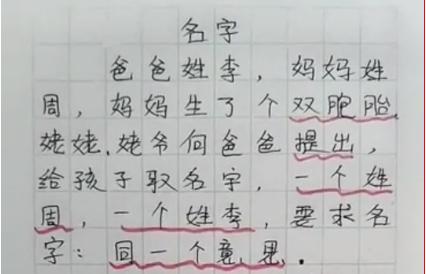 名字
爸爸姓李，妈妈姓
周，妈妈生了个双胞胎，
姥姥、姥爷向爸爸提出，
给孩子取名字，一个姓
周，一个姓李，要求名
字：同一个意思.